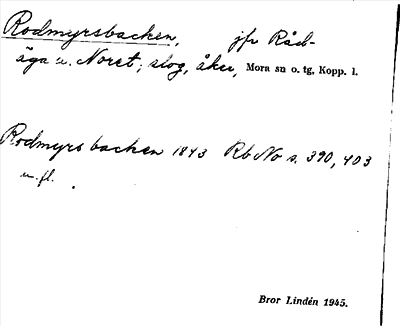 Rodmyrsbacken, jfr Råd-
äga u. Noret; slog, åker, Mora sn o. tg, Kopp. l.
Rodmyrs backen 1843 Rb No s. 390, 403
m. fl.
Bror Lindén 1945.